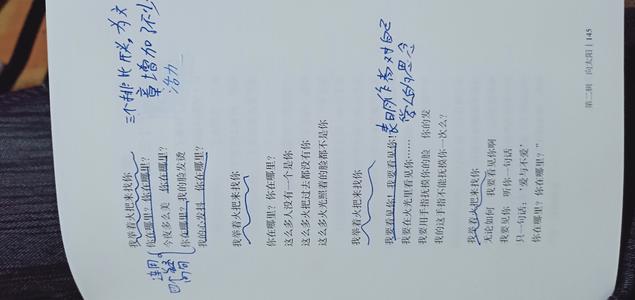 三个排比段，为文
章增加了不少
活力
我举着火把来找你
你在哪里？你在哪里？
今夜多么美 你在哪里？
你在哪里？我的脸发烫
我的心发抖 你在哪里？
连用
四个
问句
我举着火把来找你
你在哪里？你在哪里？
这么多人没有一个是你
这么多火把过去都没有你
这么多火光照着的脸都不是你
我举着火把来找你
我要看见你！我要看见你！
我要在火光里看见你……
我要用手指抚摸你的脸 你的发
我的这手指不能抚摸你一次么？
表明作者对自己
的思念
我举着火把来找你
无论如何 我要看见你啊
我要见你 听你一句话
只一句话：“爱与不爱”
你在哪里？你在哪里？”
第二辑 向太阳 | 145